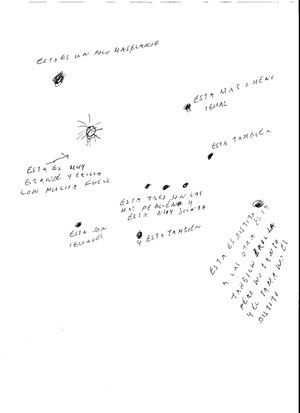 ESTA ES UN POCO MAS GRANDE
ESTA MAS O MENO
IGUAL
ESTA TAMBIEN
ESTA ES MUY
GRANDE Y BRILLA
CON MUCHA FUERZ
ESTA TRES SON LAS
MAS PEQUEÑA Y
ESTA MUY JUNTA
ESTA SON
IGUALES
Y ESTA TAMBIEN
ESTA ES DISTINTA
A LAS OTRA ESTA
TAMBIEN BRILLA
PERO NO TANTO
Y EL TAMAÑO ES
DISTINTO